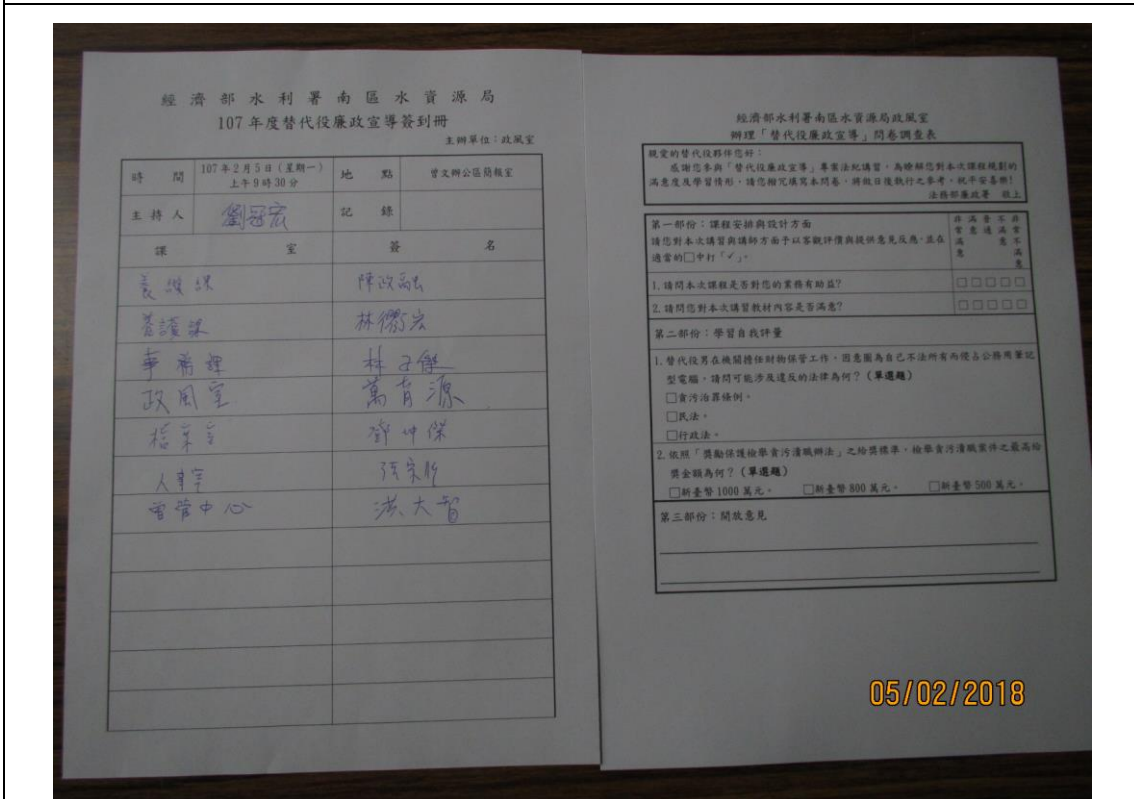 經濟部水利署南區水資源局
107年度替代役廉政宣導簽到冊
主辦單位：政風室
時間 107年2月5日(星期一) 上午9時30分 地點 曾文辦公區簡報室
主持人 劉冠宏 記錄
課室 簽名
養護課 陳政融
養護課 林衢宏
林子傑
政風室 萬育源
坤傑
人事室 張宗
曾管中心 洪大智
經濟部水利署南區水資源局政風室
辦理「替代役廉政宣導」問卷調查表
親愛的替代役夥伴您好：
感謝您參與「替代役廉政宣導」專案法紀講習，為瞭解您對本次課程規劃的
滿意度及學習情形，請您撥冗填寫本問卷，將做日後執行之參考，祝平安喜樂!
法務部廉政署 敬上
第一部份：課程安排與設計方面
請您對本次講習與講師方面予以客觀評價與提供意見反應，並在
適當的□中打「✓」。
非常滿意 滿意 普通 不滿意 非常不滿意
1.請問本次課程是否對您的業務有助益? □□□□□
2.請問您對本次講習教材內容是否滿意? □□□□□
第二部份：學習自我評量
1.替代役男在機關擔任財物保管工作，因意圖為自己不法所有而侵占公務用筆記
型電腦，請問可能涉及違反的法律為何？(單選題)
□貪污治罪條例。
□民法。
□行政法。
2.依照「獎勵保護檢舉貪污瀆職辦法」之給獎標準，檢舉貪污瀆職案件之最高給
獎金額為何？(單選題)
□新臺幣1000萬元。 □新臺幣800萬元。 □新臺幣500萬元。
第三部份：開放意見
05/02/2018